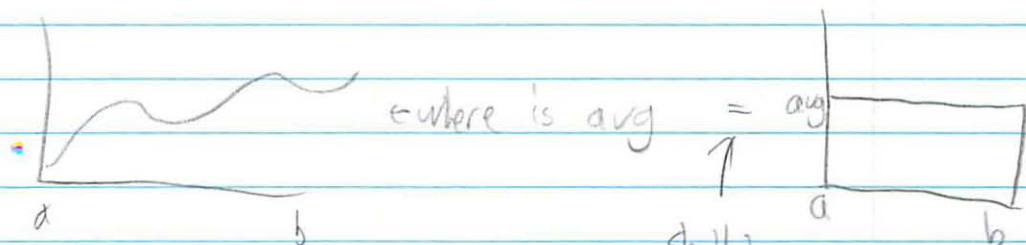 ←where is avg = avg
a b
a b